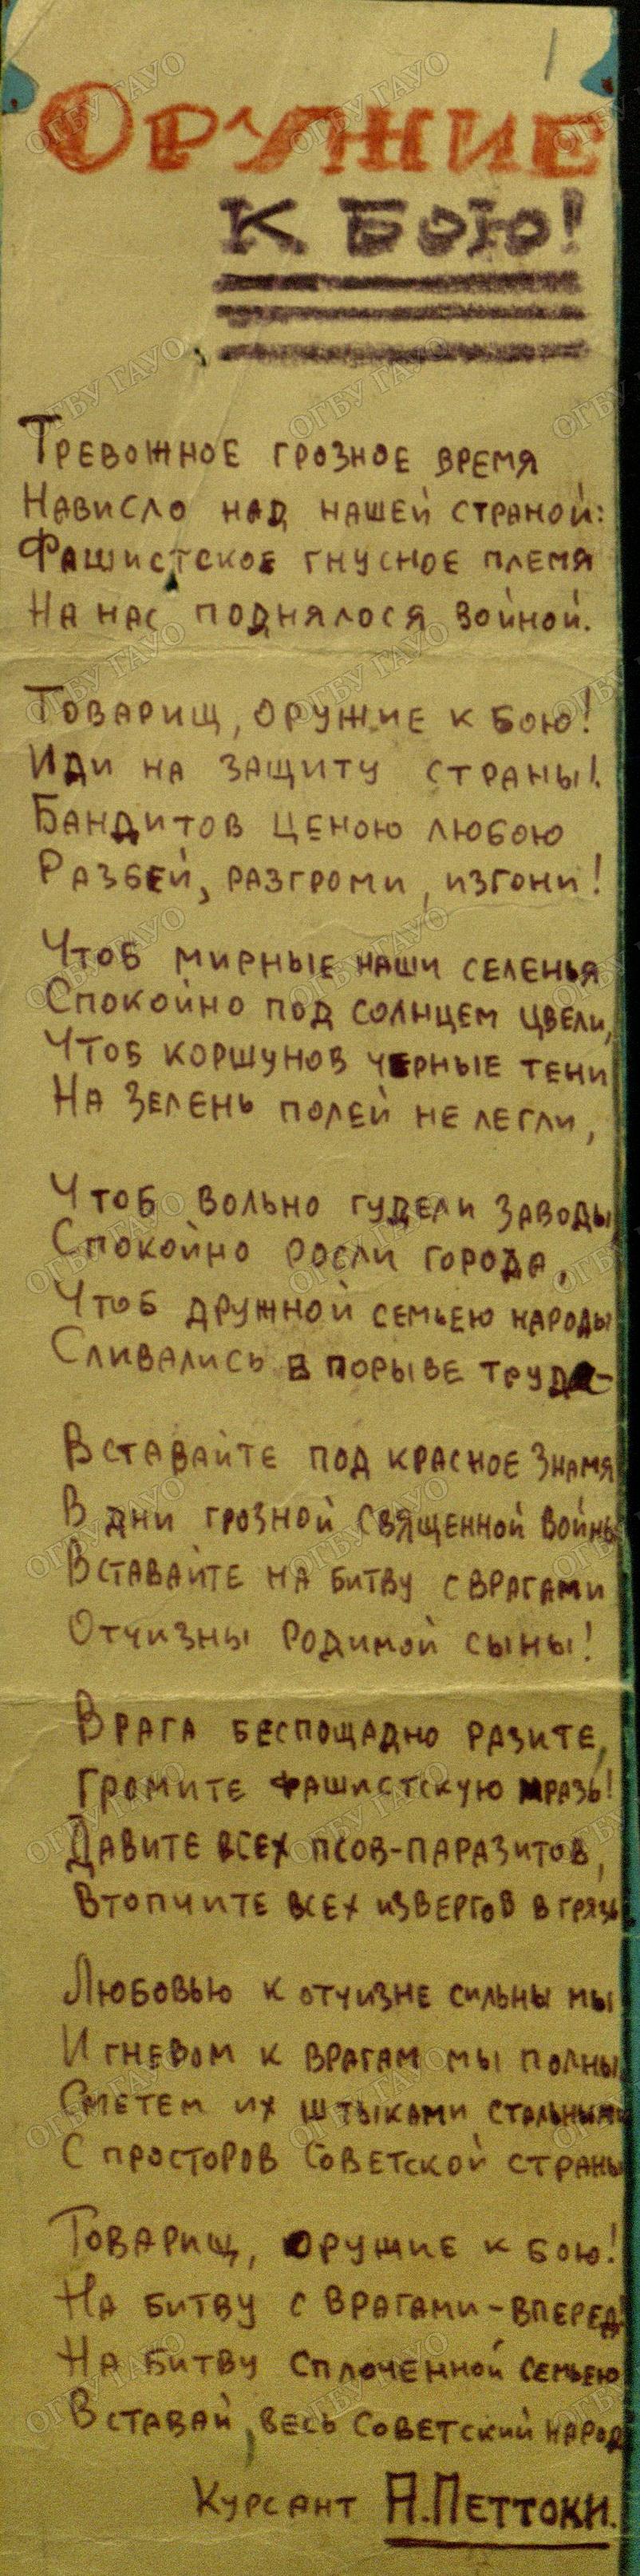 ОРУЖИЕ
К БОЮ!
Тревожное грозное время
Нависло над нашей страной:
Фашистское гнусное племя
На нас поднялося войной.
Товарищ, оружие к бою!
Иди на защиту страны!
Бандитов ценою любою
Разбей, разгроми, изгони!
Чтоб мирные наши селенья
Спокойно под солнцем цвели,
Чтоб коршунов черные тени
На зелень полей не легли,
Чтоб вольно гудели заводы
Спокойно росли города,
Чтоб дружной семьею народы
Сливались в порыве труда-
Вставайте под красное знамя
В дни грозной священной войны
Вставайте на битву с врагами
Отчизны родимой сыны!
Врага беспощадно разите,
Громите фашистскую мразь!
Давите всех псов-паразитов,
Втопчите всех извергов в грязь
Любовью к отчизне сильны мы
И гневом к врагам мы полны
Сметем их штыками стальными
С просторов Советской страны
Товарищ, оружие к бою!
На битву с врагами-вперед
На битву сплоченной семьею
Вставай, весь Советский народ
Курсант А.Петтоки.
ОГБУ ГАУО